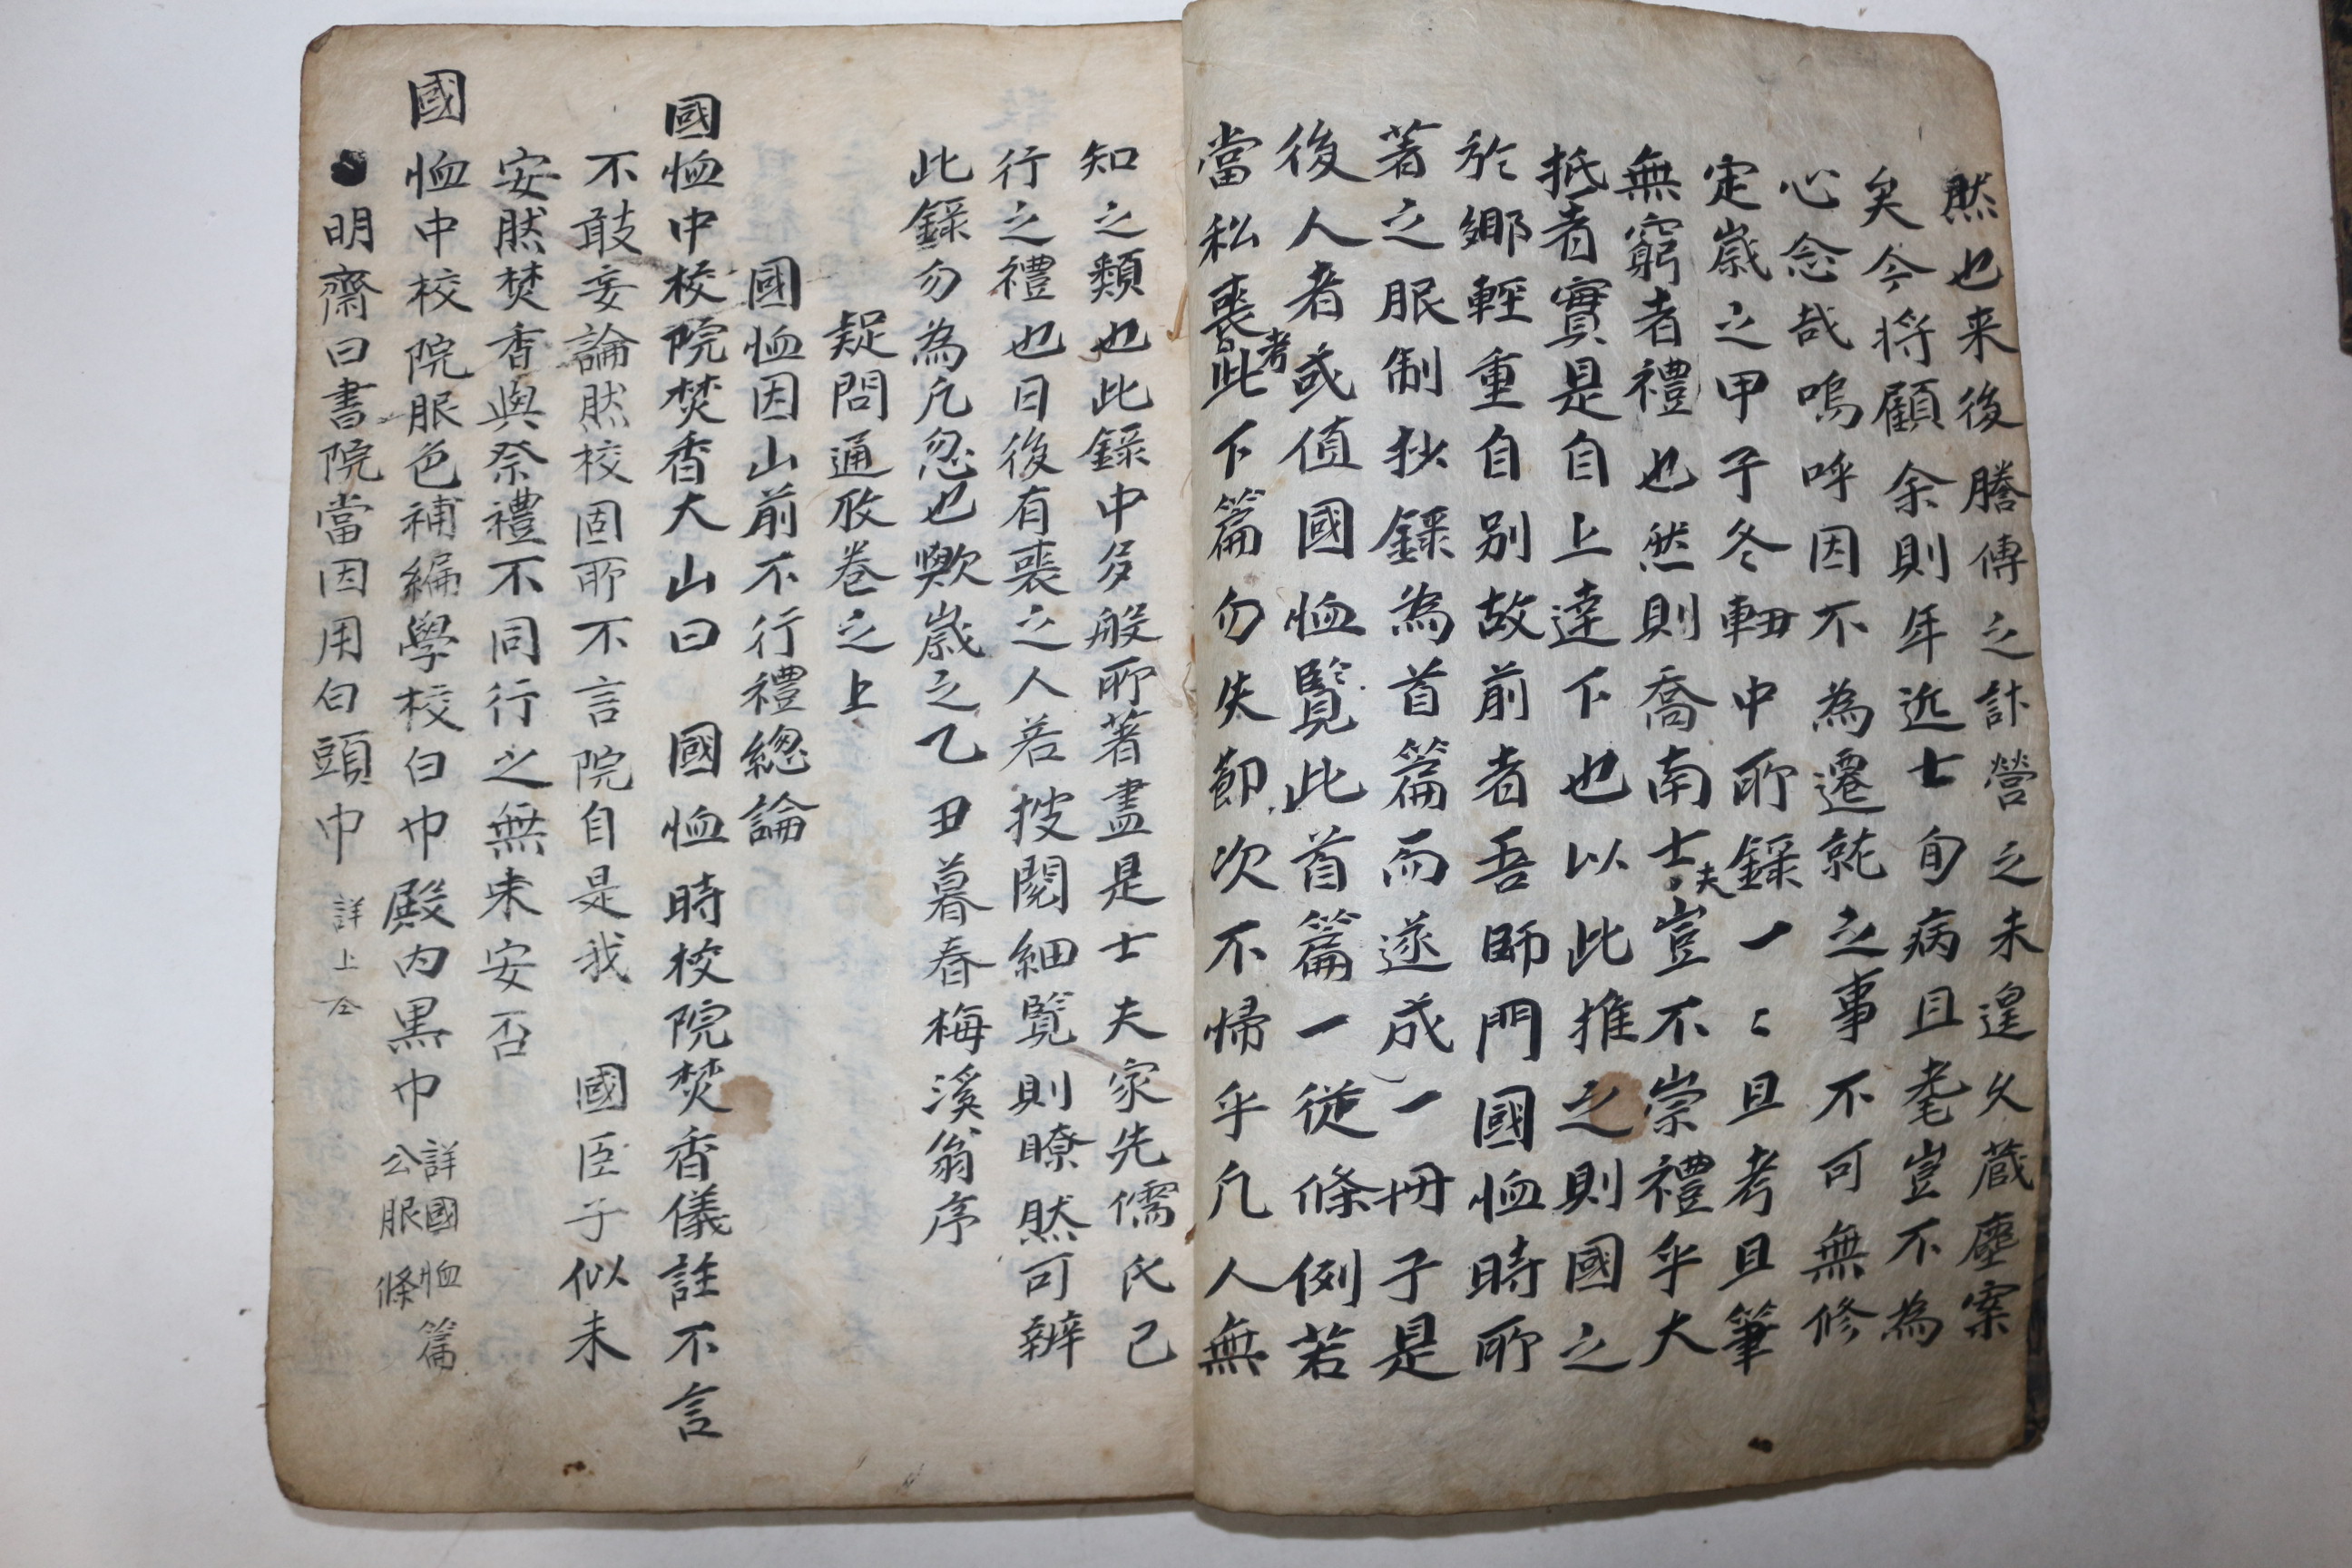 然也来後謄傳之計營之未遑久蔵塵案
矣今将顧余則年近七旬病且耄豈不為
心念哉嗚呼因不為遷就之事不可無修
定歲之甲子冬軸中所録一〻且考且筆
無窮者禮也然則喬南士夫豈不崇禮乎大
抵者實是自上達下也以此推之則國之
於鄉輕重自別故前者吾師門國恤時所
著之服制抄録為首篇而遂成一冊子是
後人者或值國恤覽此首篇一從條例若
當私喪考此下篇勿失節次不歸乎凡人無
知之類也此録中多般所著盡是士夫家先儒氏已
行之禮也日後有喪之人若披閱細覽則瞭然可辦
此録勿為凡忽也歟歲之乙丑暮春梅溪翁序
疑問通攷卷之上
國恤因山前不行禮總論
國恤中校院焚香大山曰 國恤時校院焚香儀註不言
不敢妄論然校固所不言院自是我 國臣子似未
安然焚香與祭禮不同行之無未安否
國恤中校院服色補編學校白巾殿內黒巾 詳國恤篇
公服條
明齋曰書院當因用白頭巾 詳上仝